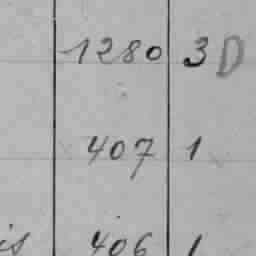 1280 3 D
407 1
is 406 1